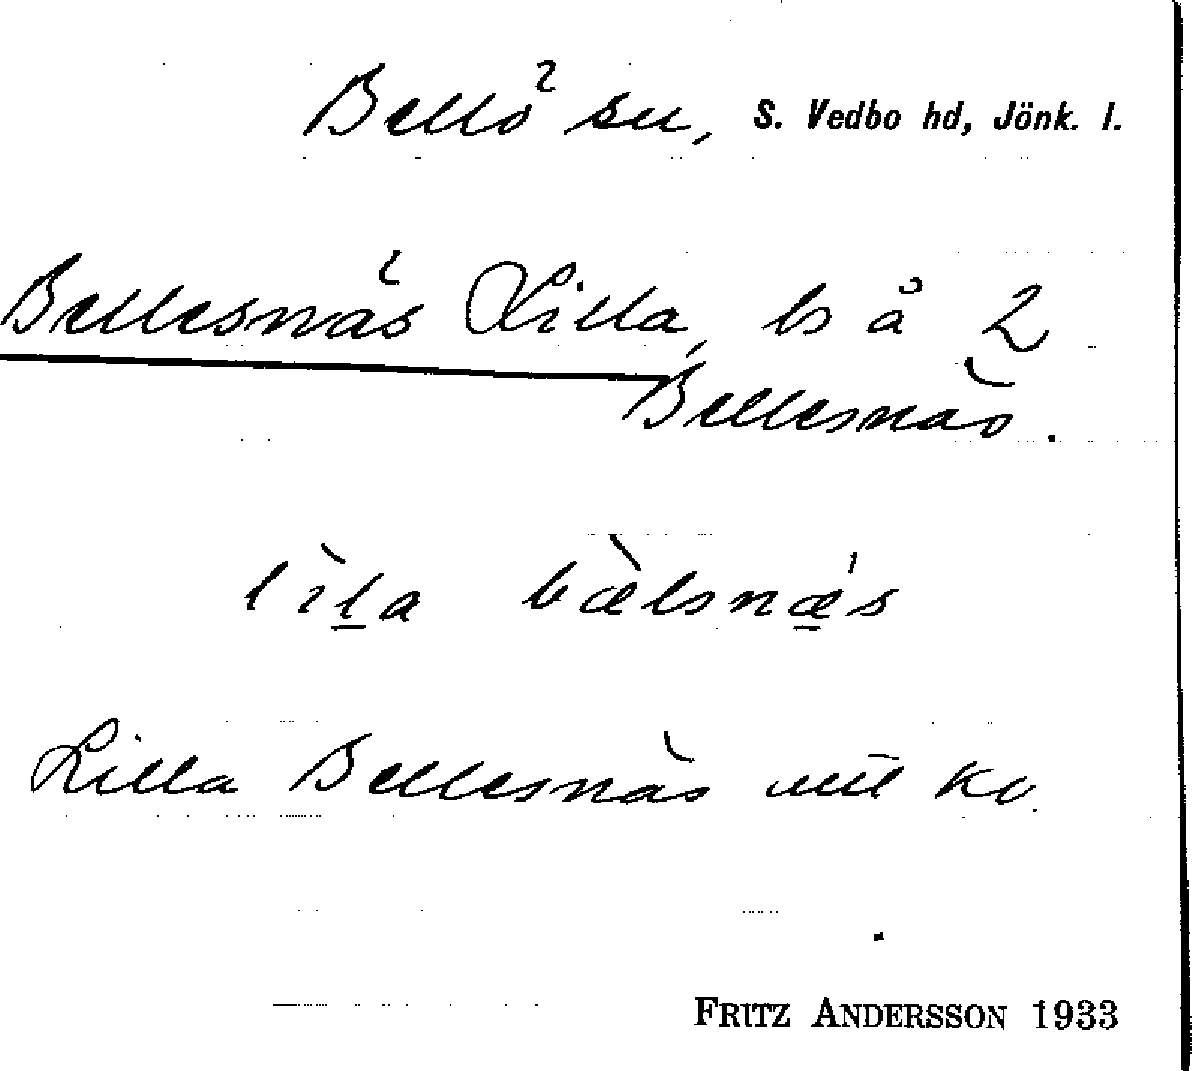 Bellö sn, S. Vedbo hd, Jönk. l.
Bellesnäs Lilla, ls å 2
Bellesnäs.
lìḻa bæ̀lsnǽ̠s
Lilla Bellesnäs enl kv.
FRITZ ANDERSSON 1933